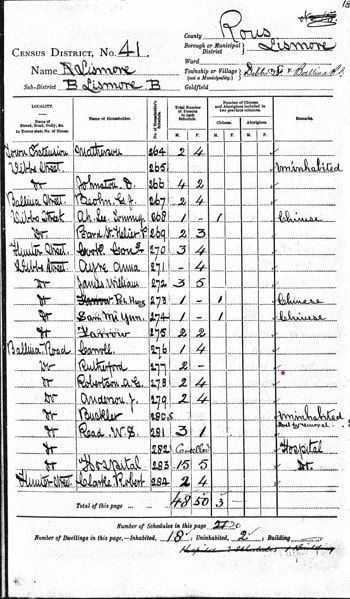 18
County Rous
CENSUS DISTRICT, No. 41. Borough or Municipal District Lismore
Ward
Name Lismore Township or Village (not a Municipality)
Sub-District B Lismore B Goldfield
LOCALITY. Name of Householder. Number of Householder's Schedule. Total Number of Persons in each District. Number of Chinese and Aborigines included in two previous columns. Remarks.
Name of Street, Road, Gully, &c. In Towns state No. of House. M. F. Chinese. Aborigines.
M. F. M. F.
Town Extension Mathewson 264 2 4
Webb Street. 265 Uninhabited
Do Johnston D. 266 4 2
Ballina Street. 267 2 4
Webb Street 268 1 - 1 Chinese
Do 269 2 3
Hunter Street. Cook 270 3 4
Webb Street. Ayre Anna 271 - 4
Do James William 272 3 5
Do 273 1 - 1 Chinese
Do 274 1 - 1 Chinese
Do Farrow 275 2 2
Ballina Road Carroll 276 1 4
Do Rutherford 277 2 -
Do Robertson A. G. 278 2 4
Do Anderson J. 279 2 4
Do Buckler 280 Uninhabited
Do Read W. S. 281 3 1
Do 282 Cancelled Hospital
Do Hospital 283 15 5 Do.
Hunter Street Clarke Robert 284 2 4
Total of this page ... 48 50 3
Number of Schedules in this page 20
Number of Dwellings in this page.—Inhabited, 18; Uninhabited, 2; Building